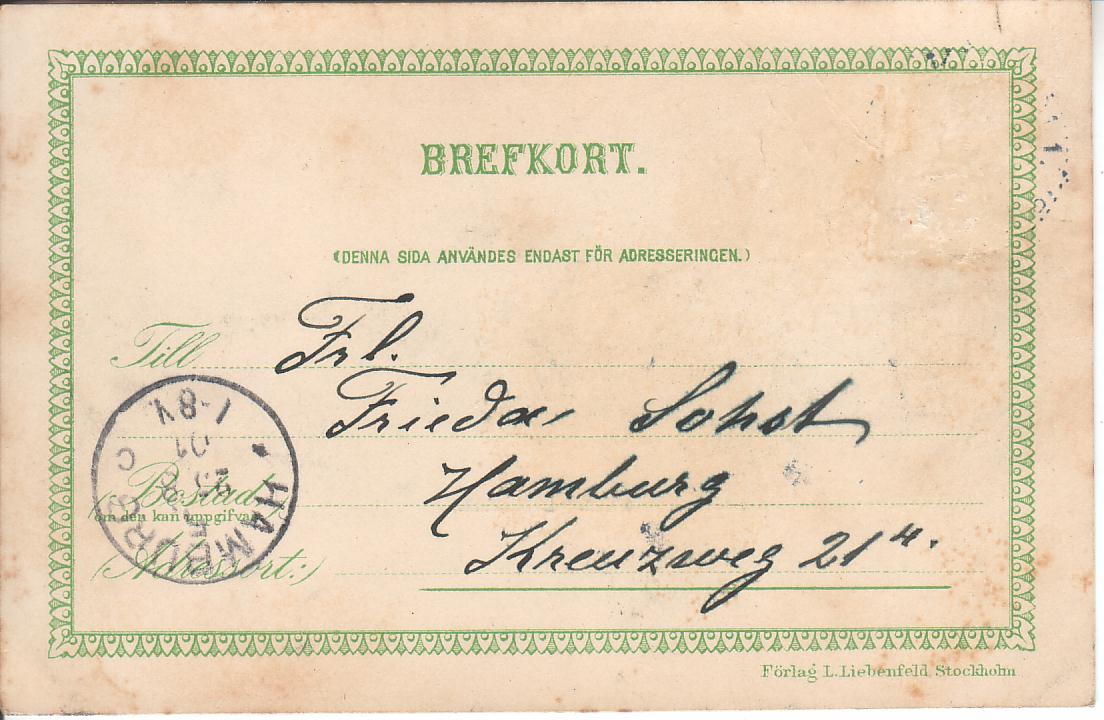 BREFKORT.
(DENNA SIDA ANVÄNDES ENDAST FÖR ADRESSERINGEN.)
Till Frl.
Frieda Sohst
Bostad Hamburg
(om den kan uppgifvas)
Kreuzweg 21 II.
(Adressort:)
HAMBURG
1-8V
01
C
Förlag L. Liebenfeld Stockholm